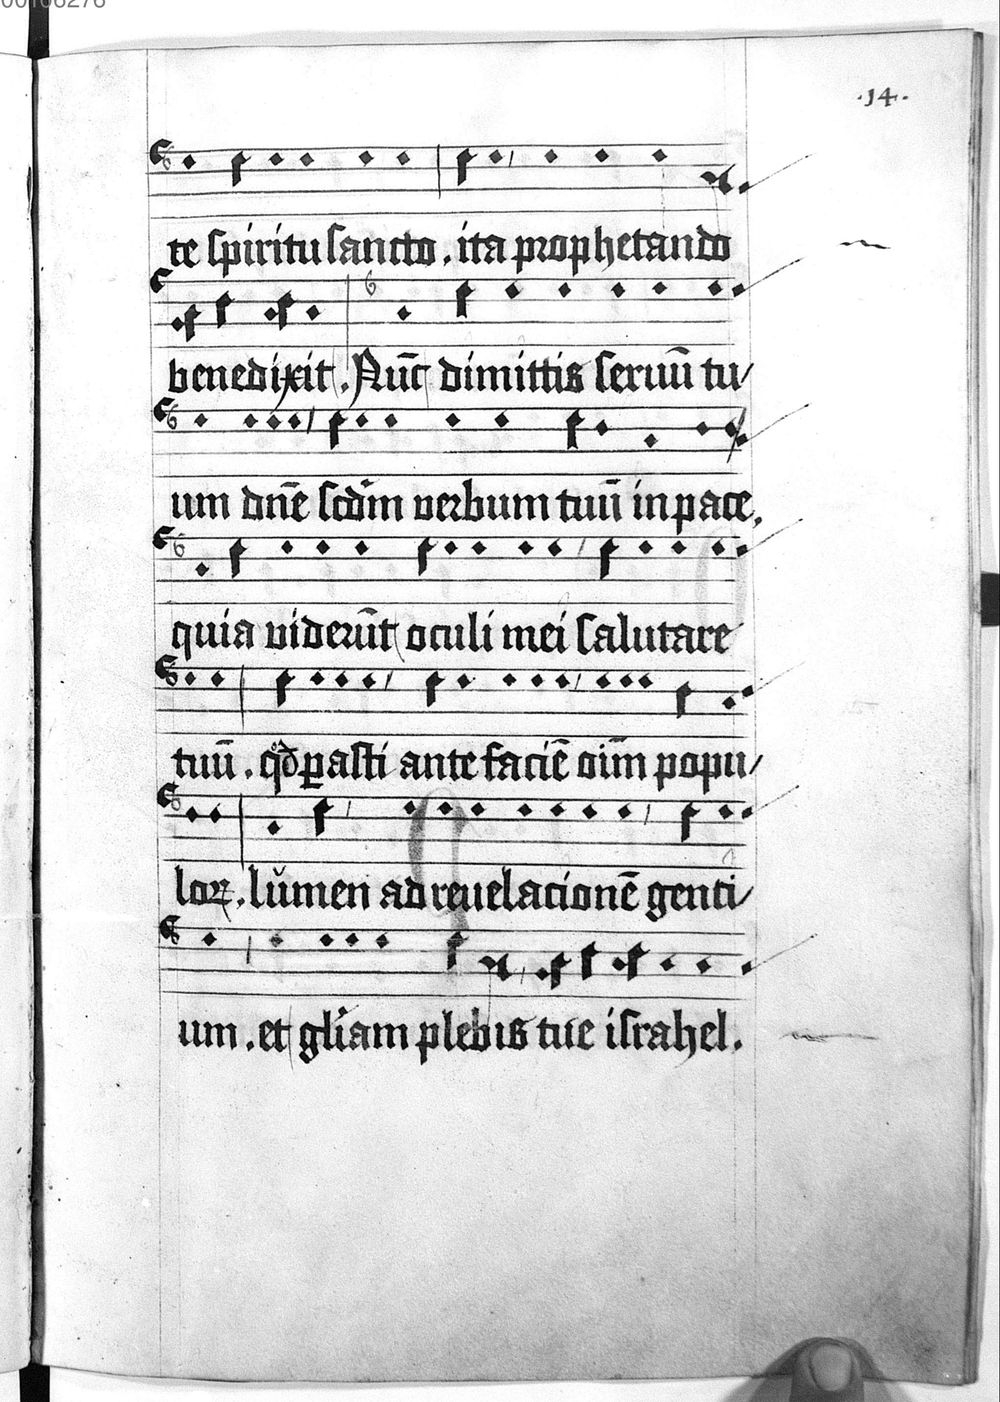 00106276
·14·
te spiritu sancto . ita prophetando
benedixit . Nūc dimittis seruū tu/
um dn̄e scdm̄ verbum tuū in pace.
quia viderūt oculi mei salutare
tuū . qd̊ ꝑasti ante faciē oīm popu/
loꝝ . lumen ad reuelacionē genti/
um . et gl̄iam plebis tue israhel .